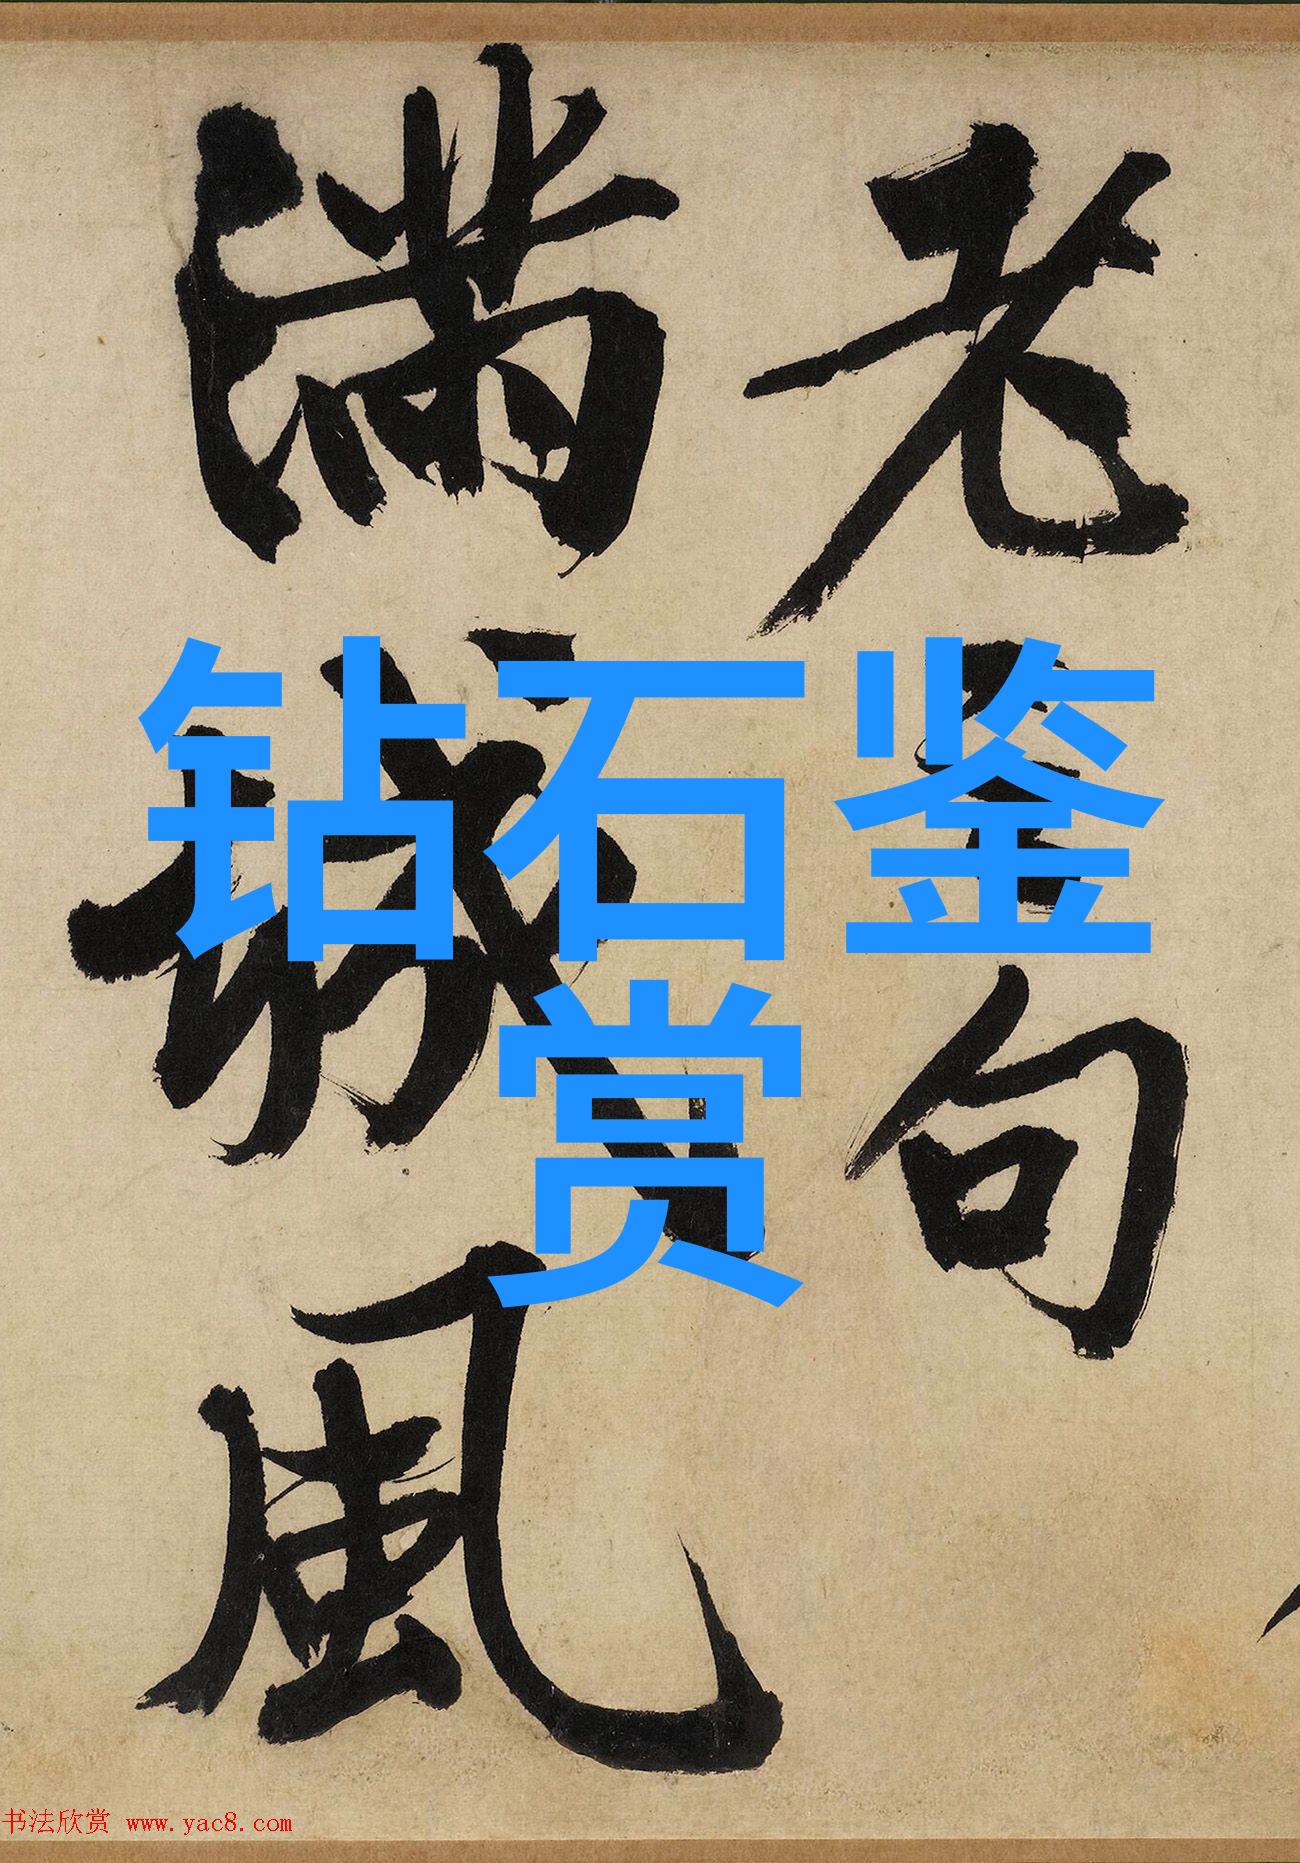 老 句
滿城風
钻石鉴
赏
书法欣赏 www.yac8.com